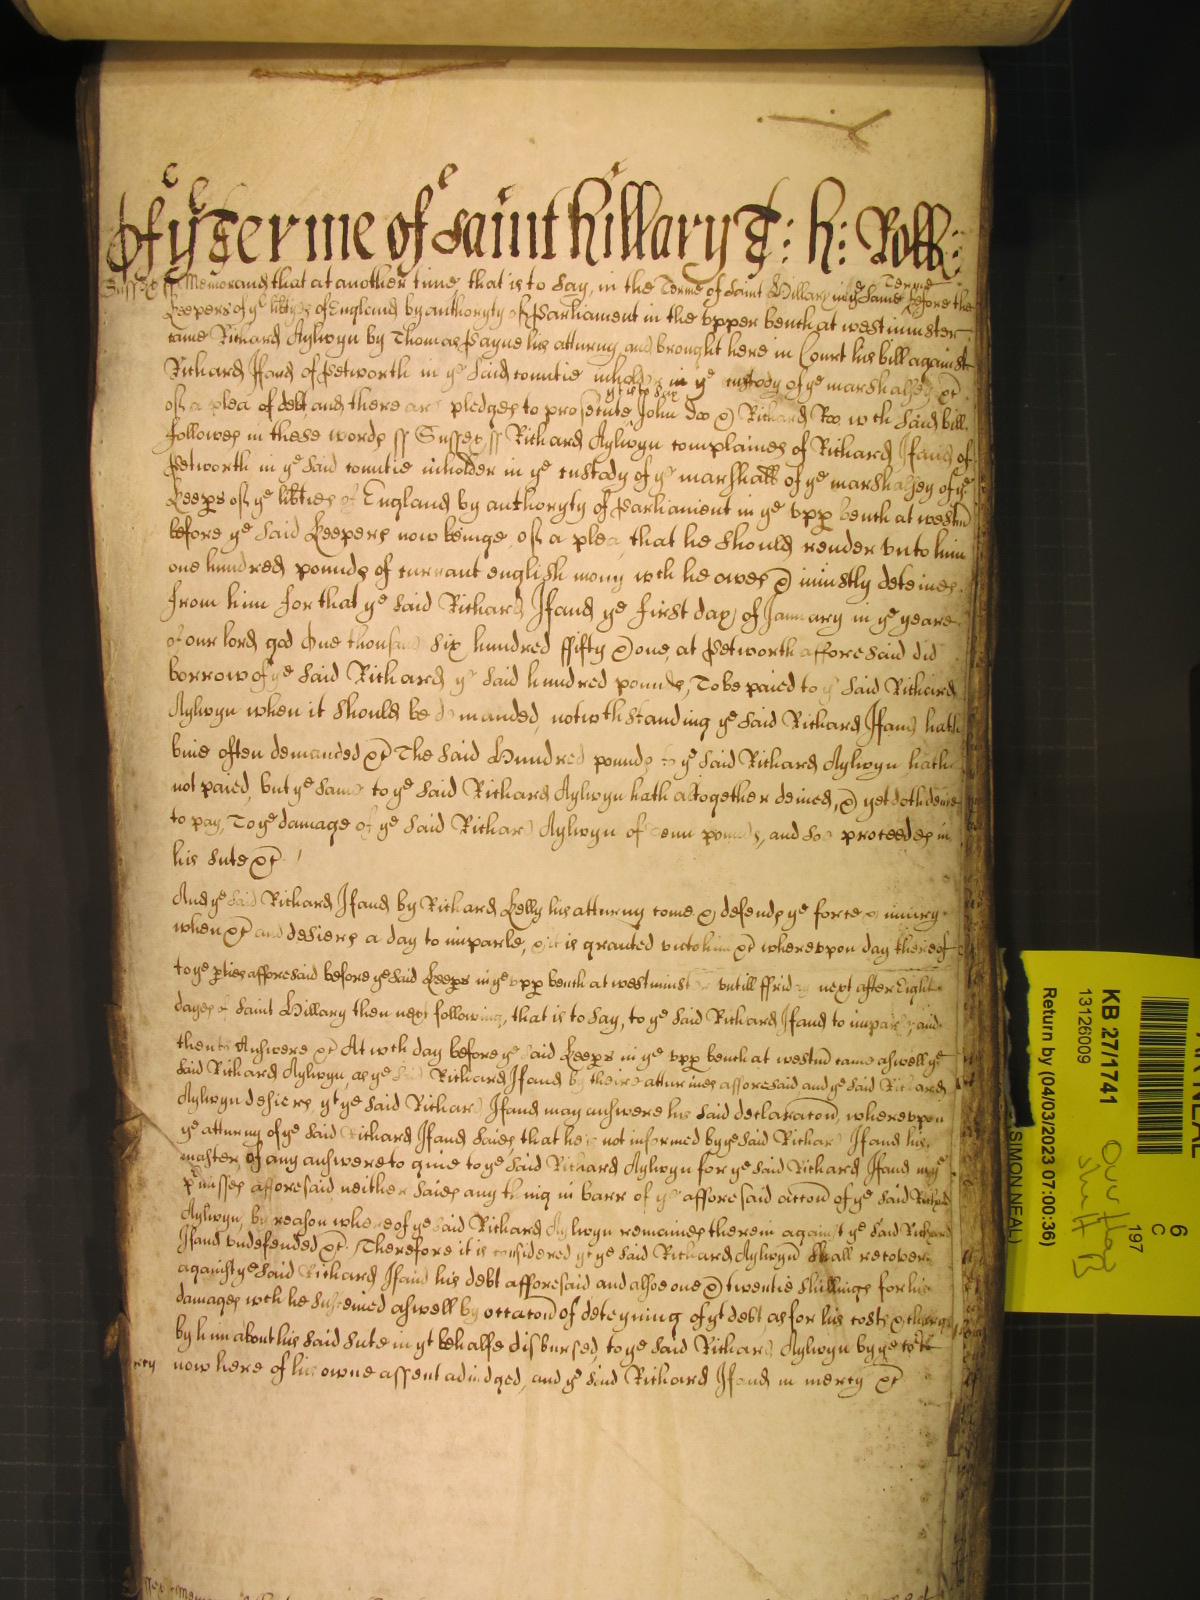 Of ye Terme of Saint Hillary T: h: Roll:
Sussex ss Memorand that at another time, that is to say, in the Terme of Saint Hillary in ye same Terme before the
Keepers of ye libtyes of England by authoryty of Parliament in the upper bench at westminster
came Richard Aylwyn by Thomas Payne his atturny and brought here in Court his bill against
Richard Ifand of Petworth in ye said countie inholder in ye custody of ye marshalsey &c
of a plea of debt and there are pledges to prosecute, yt is to say John Doo & Richard Roo wch said bill
followes in these words ss Sussex ss Richard Aylwyn complaines of Richard Ifand of
Petworth in ye said countie inholder in ye custody of ye marshall of ye marshalsey of ye
Keepers of ye libties of England by authoryty of Parliament in ye upp bench at westm
before ye said Keepers now beinge, of a plea, that he should render unto him
one hundred pounds of currant english mony wch he owes & iniustly deteines
from him for that ye said Richard Ifand ye first day of January in ye yeare
of our lord god One thousand six hundred ffifty & one, at Petworth afforesaid did
borrow of ye said Richard ye said hundred pounds, To be paied to ye said Richard
Aylwyn when it should be demanded, notwthstanding ye said Richard Ifand hath
bine often demanded &c The said Hundred pounds to ye said Richard Aylwyn hath
not paied, but ye same to ye said Richard Aylwyn hath altogether denied, & yet doth denie
to pay, To ye damage of ye said Richard Aylwyn of tenn pounds, and soe proceedes in
his sute &c
And ye said Richard Ifand by Richard Kelly his atturny come & defends ye force & iniury
when &c and desiers a day to imparle, & it is granted unto him &c whereupon day thereof
to ye pties afforesaid before ye said Keeps in ye upp bench at westminster untill ffriday next after Eight
dayes of Saint Hillary then next following, that is to say, to ye said Richard Ifand to imparle and
then to Answere &c At wch day before ye said Keeps in ye upp bench at westm came aswell ye
said Richard Aylwyn, as ye said Richard Ifand by theire atturines afforesaid and ye said Richard
Aylwyn desiers, yt ye said Richard Ifand may answere his said declaracon, whereupon
ye atturny of ye said Richard Ifand saies, that he is not informed by ye said Richard Ifand his
master, of any answere to giue to ye said Richard Aylwyn for ye said Richard Ifand in ye
pmisses afforesaid neither saies any thing in barr of ye afforesaid accon of ye said Richard
Aylwyn, by reason whereof ye said Richard Aylwyn remaines therein against ye said Richard
Ifand undefended &c. Therefore it is considered yt ye said Richard Aylwyn shall recover
against ye said Richard Ifand his debt afforesaid and alsoe one & twentie shillings for his
damages wch he susteined aswell by occacon of deteyning of yt debt, as for his costs & charges
by him about his said sute in yt behalfe disbursed, to ye said Richard Aylwyn by ye Co't
now here of his owne assent adiudged, and ye said Richard Ifand in mercy &c
KB 27/1741
13126009
Return by (04/03/2023 07:00:36)
(SIMON NEAL)
6
C
197